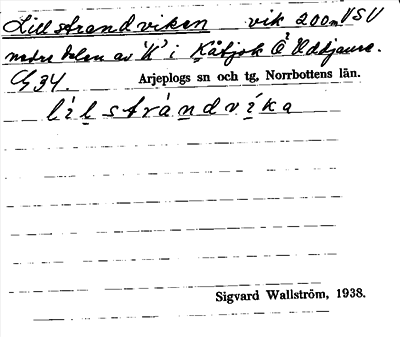 Lillstrandviken vik 200 m VSV
nedre delen av "K" i Kåtjok Ö Uddjaure.
G 34.
Arjeplogs sn och tg, Norrbottens län.
lilstrándvíka
Sigvard Wallström, 1938.